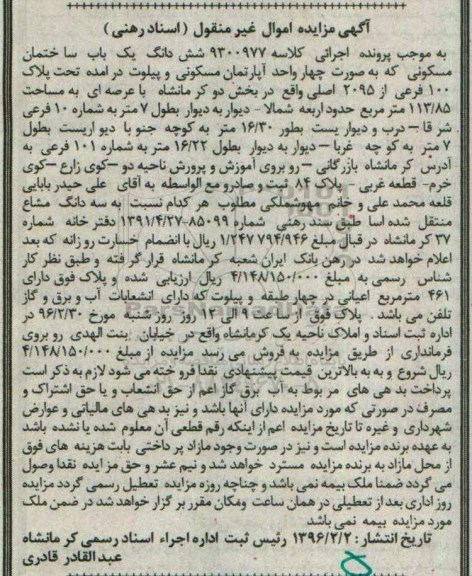 آگهی مزایده اموال غیر منقول (اسناد رهنی)
به موجب پرونده اجرائی کلاسه ۹۳۰۰۹۷۷ شش دانگ یک باب ساختمان
مسکونی که به صورت چهار واحد آپارتمان مسکونی و پیلوت در امده تحت پلاک
۱۰۰ فرعی از ۲۰۹۵ اصلی واقع در بخش دو کر مانشاه با عرصه ای به مساحت
۱۱۳/۸۵ متر مربع حدود اربعه شمالا - دیوار به دیوار بطول ۷ متر به شماره ۱۰ فرعی
شر قا – درب و دیوار یست بطور ۱۶/۳۰ متر به کوچه جنو با دیو اریست بطول
۷ متر به کو چه غربا – دیوار به دیوار بطول ۱۶/۲۲ متر به شماره ۱۰۱ فرعی به
آدرس کر مانشاه بازرگانی – رو بروی آموزش و پرورش ناحیه دو – کوی زارع – کوی
خرم- قطعه غربی - پلاک ۸۴ ثبت و صادرو مع الواسطه به آقای علی حیدر بابایی
قلعه محمد علی و خانم مهوشملکی مطلوب هر کدام نسبت به سه دانگ مشاع
منتقل شده اسا طبق سند رهنی شماره ۸۵۰۹۹-۱۳۹۱/۴/۲۷ دفتر خانه شماره
۳۷ کر مانشاه در قبال مبلغ ۱/۲۴۷/۷۹۴/۹۴۶ ریال با انضمام خسارت رو زانه که بعد
اعلام خواهد شد در رهن بانک ایران شعبه کر مانشاه قرار گر فته و طبق نظر کار
شناس رسمی به مبلغ ۴/۱۴۸/۱۵۰/۰۰۰ ریال ارزیابی شده و پلاک فوق دارای
۴۶۱ مترمربع اعیانی در چهار طبقه و پیلوت که دارای انشعابات آب و برق و گاز
تلفن می باشد . پلاک فوق از ساعت ۹ الی ۱۲ روز دو شنبه مورخ ۹۶/۲/۳۰ در
اداره ثبت اسناد و املاک ناحیه یک کرمانشاه واقع در خیابان بنت الهدی رو بروی
فرمانداری از طریق مزایده به فروش می رسد مزایده از مبلغ ۴/۱۴۸/۱۵۰/۰۰۰
ریال شروع و به به بالاترین قیمت پیشنهادی نقدا فرو خته می شود لازم به ذکر است
پرداخت بد هی های مر بوط به آب برق گاز اعم از حق انشعاب و یا حق اشتراک و
مصرف در صورتی که مورد مزایده دارای آنها باشد و نیز بد هی های مالیاتی و عوارض
شهرداری و غیره تا تاریخ مزایده اعم از اینکه رقم قطعی آن معلوم شده یا نشده باشد
به عهده برنده مزایده است و نیز در صورت وجود مازاد پر داختی بابت هزینه های فوق
از محل مازاد به برنده مزایده مسترد خواهد شد و نیم عشر و حق مز ایده نقدا وصول
می گردد ضمنا ملک بیمه نمی باشد و چنانچه روزه مزایده تعطیل رسمی گردد مزایده
روز اداری بعد از تعطیلی در همان ساعت ومکان مقرر بر گزار خواهد شد در ضمن ملک
مورد مزایده بیمه نمی باشد
تاریخ انتشار : ۱۳۹۶/۲/۲ رئیس ثبت اداره اجراء اسناد رسمی کر مانشاه
عبدالقادر قادری